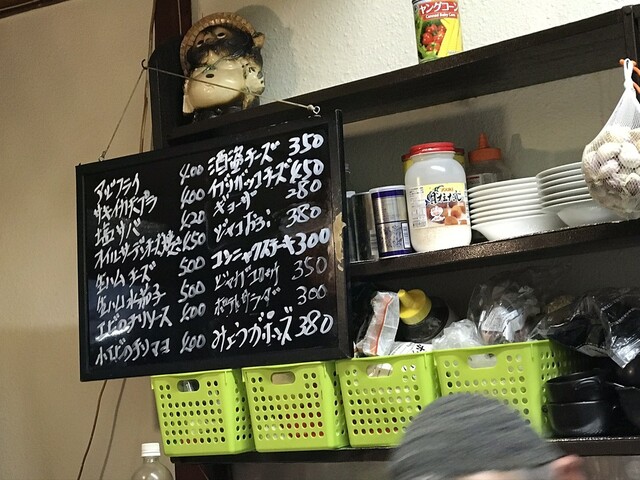 アジフライ 400
サキイカ天プラ 400
塩サバ 420
オイルサーデンチーズ焼 450
生ハム チーズ 500
生ハム 水茄子 500
エビのチリソース 400
小エビのチリマヨ 400
酒盗チーズ 350
カリガリッコチーズ 450
ギョーザ 280
380
コンニャクステーキ 300
ジャガコロッケ 350
ポテトサラダ 300
みょうがポンズ 380
ヤングコーン